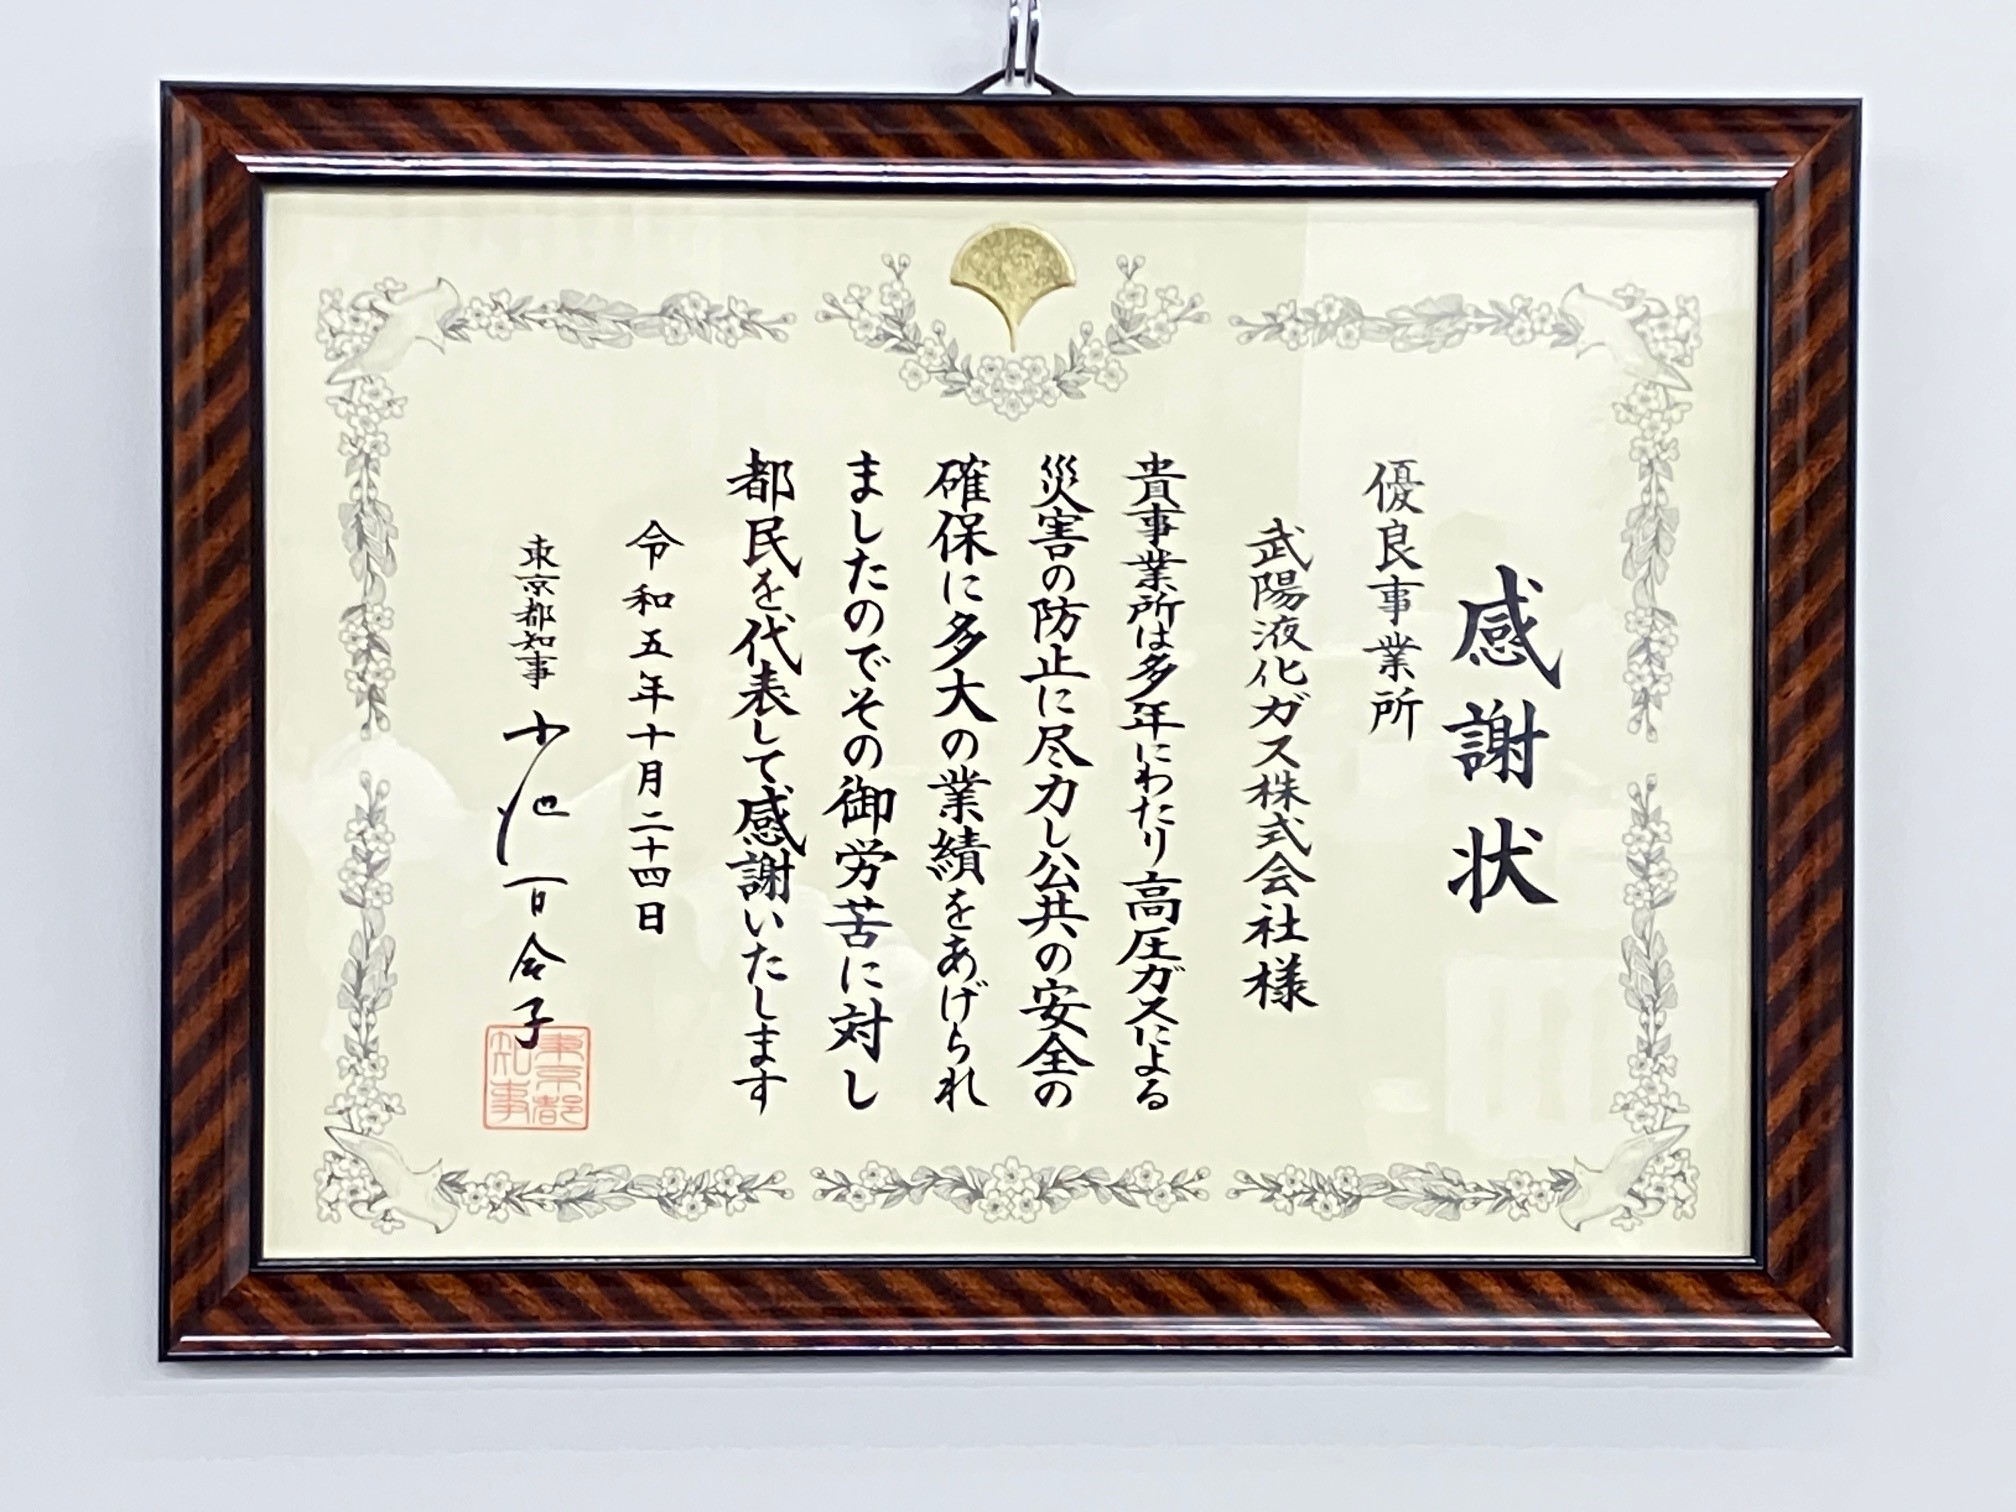 感謝状
優良事業所
武陽液化ガス株式会社様
貴事業所は多年にわたり高圧ガスによる
災害の防止に尽力し公共の安全の
確保に多大の業績をあげられ
ましたのでその御労苦に対し
都民を代表して感謝いたします
令和五年十月二十四日
東京都知事 小池百合子
東京都
知事